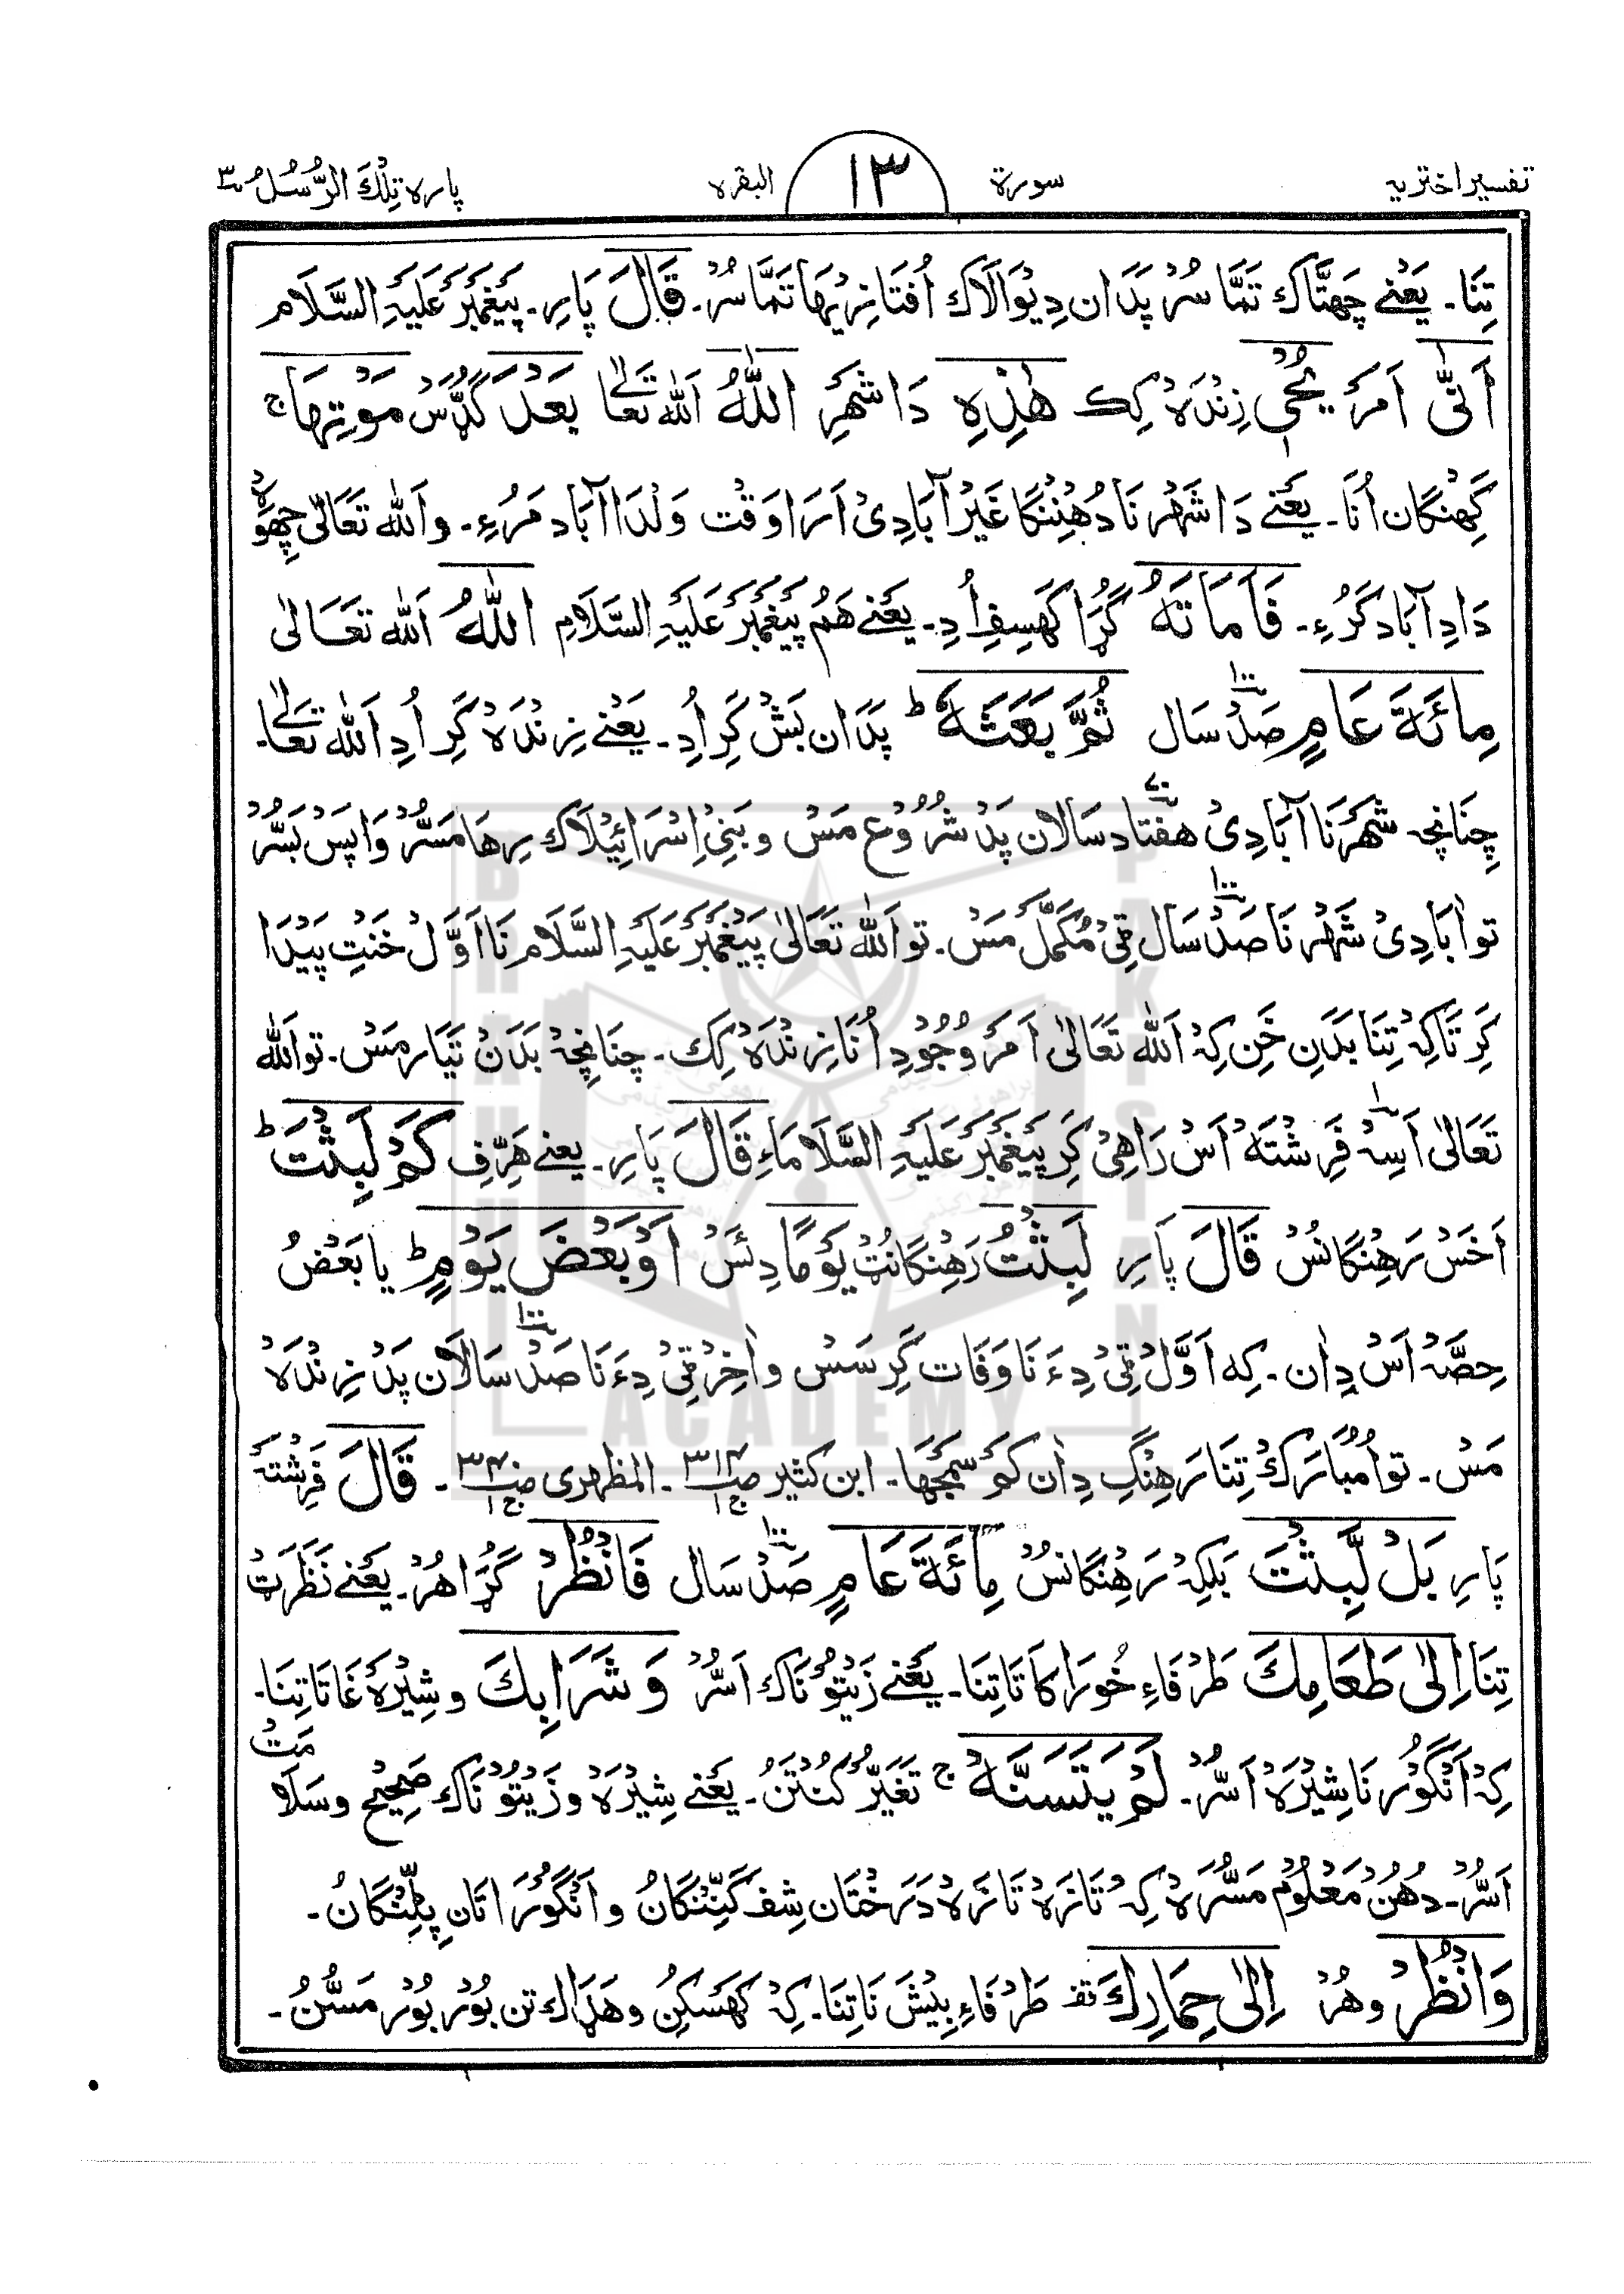 تفسیر اختریہ سورة ١٣ البقره پاره تِلْكَ الرُّسُلُ ٣
تِنَا۔ یَعْنے چَھتَّاک تَمَّا سُر پَدَان دِیْوَالَاک اُفتَا نِزِیْہَا تَمَّا سُر۔ قَالَ پَارِ۔ پَیْغَمْبَرْ عَلَیْہِ السَّلَام
اَنّٰى اَمَرَ یُحْیٖ زِنْدَہْ کِک هٰذِهِ دَا شَہْرِ اللّٰهُ اَللّٰہ تَعَالٰی بَعْدَ گُڈَّس مَوْتِهَا ج
کَہِنْگَان اُنَا۔ یَعْنے دَا شَہْر نَا دُہُنِنْگَا غَیْرْ آبَادِیْ اَرَا وَقْت وَلْدَا آبَاد مَرُءِ۔ وَاللّٰہ تَعَالٰی چِھوَہ
دَادِ آبَاد کَرُءِ۔ فَاَمَاتَهُ گُڑَا کَہِسفِ اُدِ۔ یَعْنے ہَمُ پَیْغَمْبَرْ عَلَیْہِ السَّلَامِ اللّٰهُ اَللّٰہ تَعَالٰی
مِائَةَ عَامٍ صَدْ سَال ١٠٠ ثُمَّ بَعَثَهٗ ط پَدَان بَشْ کَرِ اُدِ۔ یَعْنے زِنْدَہْ کَرِ اُدِ اَللّٰہ تَعَالٰی۔
چِنَانچہ شَہْرَنَا آبَادِیْ ہَفْتَاد ٧٠ سَالَان پَدْ شُرُوْع مَسْ وبَنِیْ اِسْرَائِیْلَاک رِہَا مَسُّرْ وَاپَسْ بَسُّرْ
تو آبَادِیْ شَہْر نَا صَدْ سَال ١٠٠ ٹِیْ مُکَمَّل مَسْ۔ تو اَللّٰہ تَعَالٰی پَیْغَمْبَرْ عَلَیْہِ السَّلَام نَا اَوَّلْ خَنْتِ پَیْدَا
کَرِ تَاکِہْ تِنَا بَدَنِ خَنِ کِہْ اَللّٰہ تَعَالٰی اَمَرْ وُجُوْدِ اُنَا زِنْدَہْ کِک۔ چِنَانچِہْ بَدَنْ تَیَّار مَسْ۔ تو اَللّٰہ
تَعَالٰی اَسِہْ فَرِشْتَہْ اَسْ رَاہِیْ کَرِ پَیْغَمْبَرْ عَلَیْہِ السَّلَامَاءِ قَالَ پَارِ۔ یعنے ہَرِّفِ كَمْ لَبِثْتَ ط
اَخَسْ رَہِنْگَانُسْ قَالَ پَارِ لَبِثْتُ رَہِنْگَانُٹْ یَوْمًا دِئَسْ اَوْ بَعْضَ یَوْمٍ ط یا بَعْضُ
حِصَّہْ اَسْ دٖان۔ کِہ اَوَّلْ ٹِیْ دِءَ نَا وَفَات کَرِسَسْ وآخِرْ ٹِیْ دِءَ نَا صَدْ ١٠٠ سَالَان پَدْ زِنْدَہْ
مَسْ۔ تو اُ مُبَارَکْ تِنَا رَہِنْگِ دٖان کَمْ سَمَجْھَا۔ ابن کثیر صـ٣١٤ ج١ ۔ المظہری صـ٣٤ ج١ ۔ قَالَ فَرِشْتَہْ
پَارِ بَلْ لَّبِثْتَ بَلکِہْ رَہِنْگَانُسْ مِائَةَ عَامٍ صَدْ سَال ١٠٠ فَانْظُرْ گُڑَا ہُرْ۔ یَعْنے نَظَرَتْ
تِنَا اِلٰى طَعَامِكَ طَرْفَاءِ خُورَاکَاتَا تِنَا۔ یَعْنے زَیْتُوْنَاک اَسُّرْ وَ شَرَابِكَ وشِیْرَہْ غَاتَا تِنَا۔
کِہْ اَنْگُوْر نَا شِیْرَہْ اَسُّرْ۔ لَمْ یَتَسَنَّهْ ج تَغَیُّرْ کُنْتَنُ۔ یَعْنے شِیْرَہْ وزَیْتُوْنَاک صَحِیْح وسَلَامَتْ
اَسُّرْ۔ دہُنْ مَعْلُوْم مَسُّرَہْ کِہْ تَازَہْ تَازَہْ دَرَخْتَان شِف کَنِّنْگَانُ واَنْگُوْرَاتَان پِلِّنْگَانُ۔
وَانْظُرْ وہُرْ اِلٰى حِمَارِكَ قف طَرْفَاءِ بِیْش نَا تِنَا۔ کِہْ کَہَسکُنْ وہَڈَاک تن بُوْر بُوْر مَسُّنُ۔
BRAHUI ACADEMY PAKISTAN